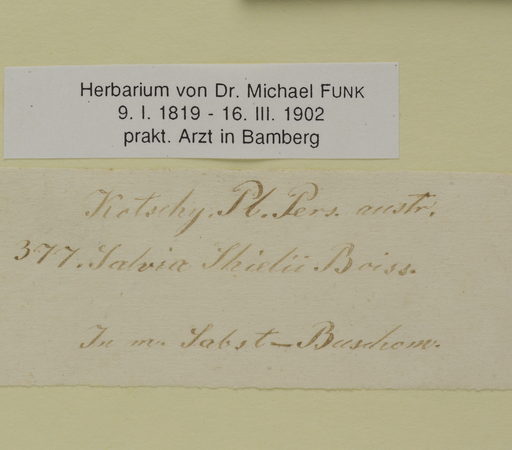 Herbarium von Dr. Michael FUNK
9. I. 1819 - 16. III. 1902
prakt. Arzt in Bamberg
Kotschy. Pl. Pers. austr.
377. Salvia Thielii Boiss.
In m. Sabst-Buschom.